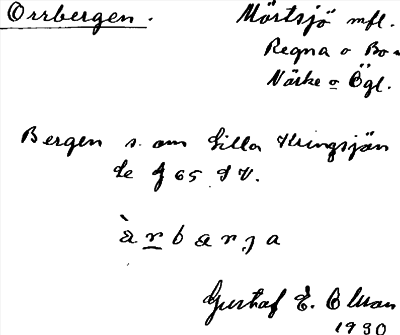 Orrbergen.
Mörtsjö mfl.
Regna o Bo-
Närke o Ögl.
Bergen s. om Lilla Kringsjön
se J 65 S V.
àrbarja
Gustaf E.
1930